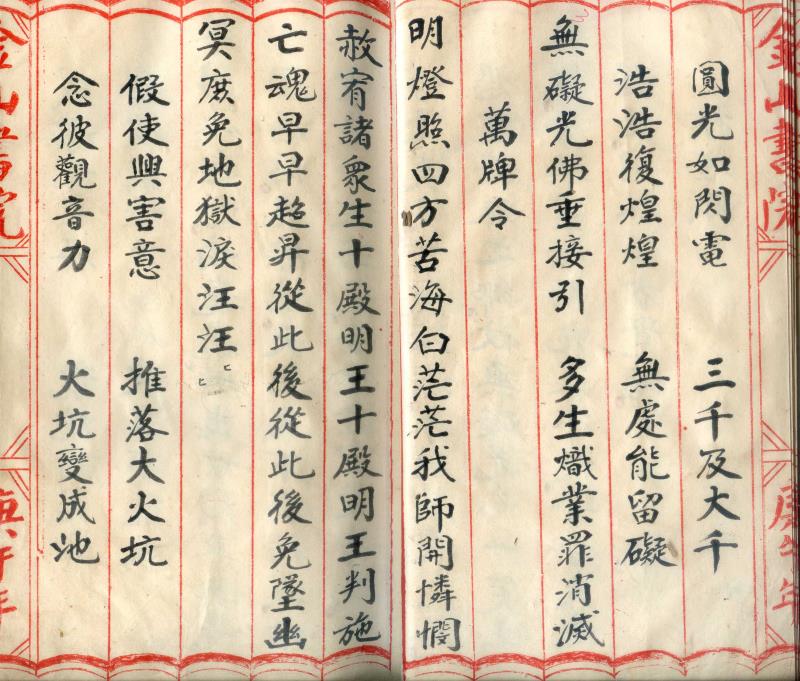 金山書院 庚午年
圓光如閃電 三千及大千
浩浩復煌煌 無處能留礙
無礙光佛垂接引 多生熾業罪消滅
萬牌令
明燈照四方苦海白茫茫我師開憐憫
赦宥諸衆生十殿明王十殿明王判施
亡魂早早超昇從此後從此後免墜幽
冥庶免地獄淚汪汪匕匕
假使興害意 推落大火坑
念彼觀音力 火坑變成池
金山書院 庚午年